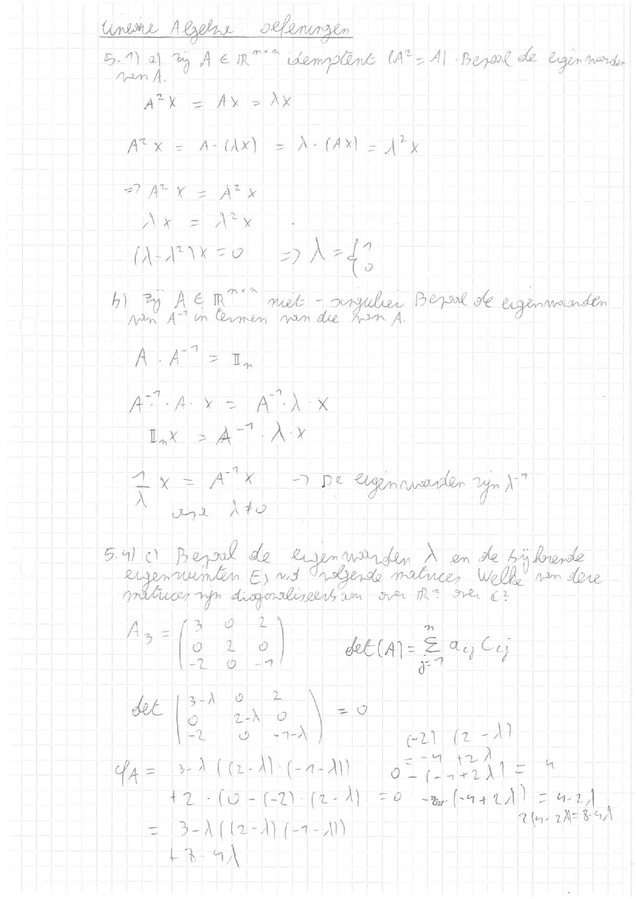 Lineaire Algebra oefeningen
5.1) a) Zij A ∈ ℝⁿˣⁿ idempotent (A² = A). Bepaal de eigenwaarden
van A.
A²x = Ax = λx
A²x = A·(λx) = λ·(Ax) = λ²x
=> A²x = A²x
λx = λ²x
(λ-λ²)x = 0 => λ = { 1
0
b) Zij A ∈ ℝⁿˣⁿ niet-singulier Bepaal de eigenwaarden
van A⁻¹ in termen van die van A.
A · A⁻¹ = 𝕀ₙ
A⁻¹·A·x = A⁻¹·λ·x
𝕀ₙx = A⁻¹·λ·x
1/λ x = A⁻¹x → De eigenwaarden zijn λ⁻¹
λ≠0
5.4) c) Bepaal de eigenwaarden λ en de bijhorende
eigenruimten Eλ v.d. volgende matrices Welke van deze
matrices zijn diagonaliseerbaar over ℝ? over ℂ?
A₃ = ( 3 0 2
0 2 0
-2 0 -1 )
det(A) = Σ(j=1..n) aᵢⱼ Cᵢⱼ
det ( 3-λ 0 2
0 2-λ 0
-2 0 -1-λ ) = 0
φA = 3-λ((2-λ)·(-1-λ))
+2·(0-(-2)·(2-λ) = 0
= 3-λ((2-λ)(-1-λ))
+8-4λ
(-2)(2-λ)
= -4+2λ
·(-4+2λ) = 4-2λ
2(4-2λ)=8-4λ